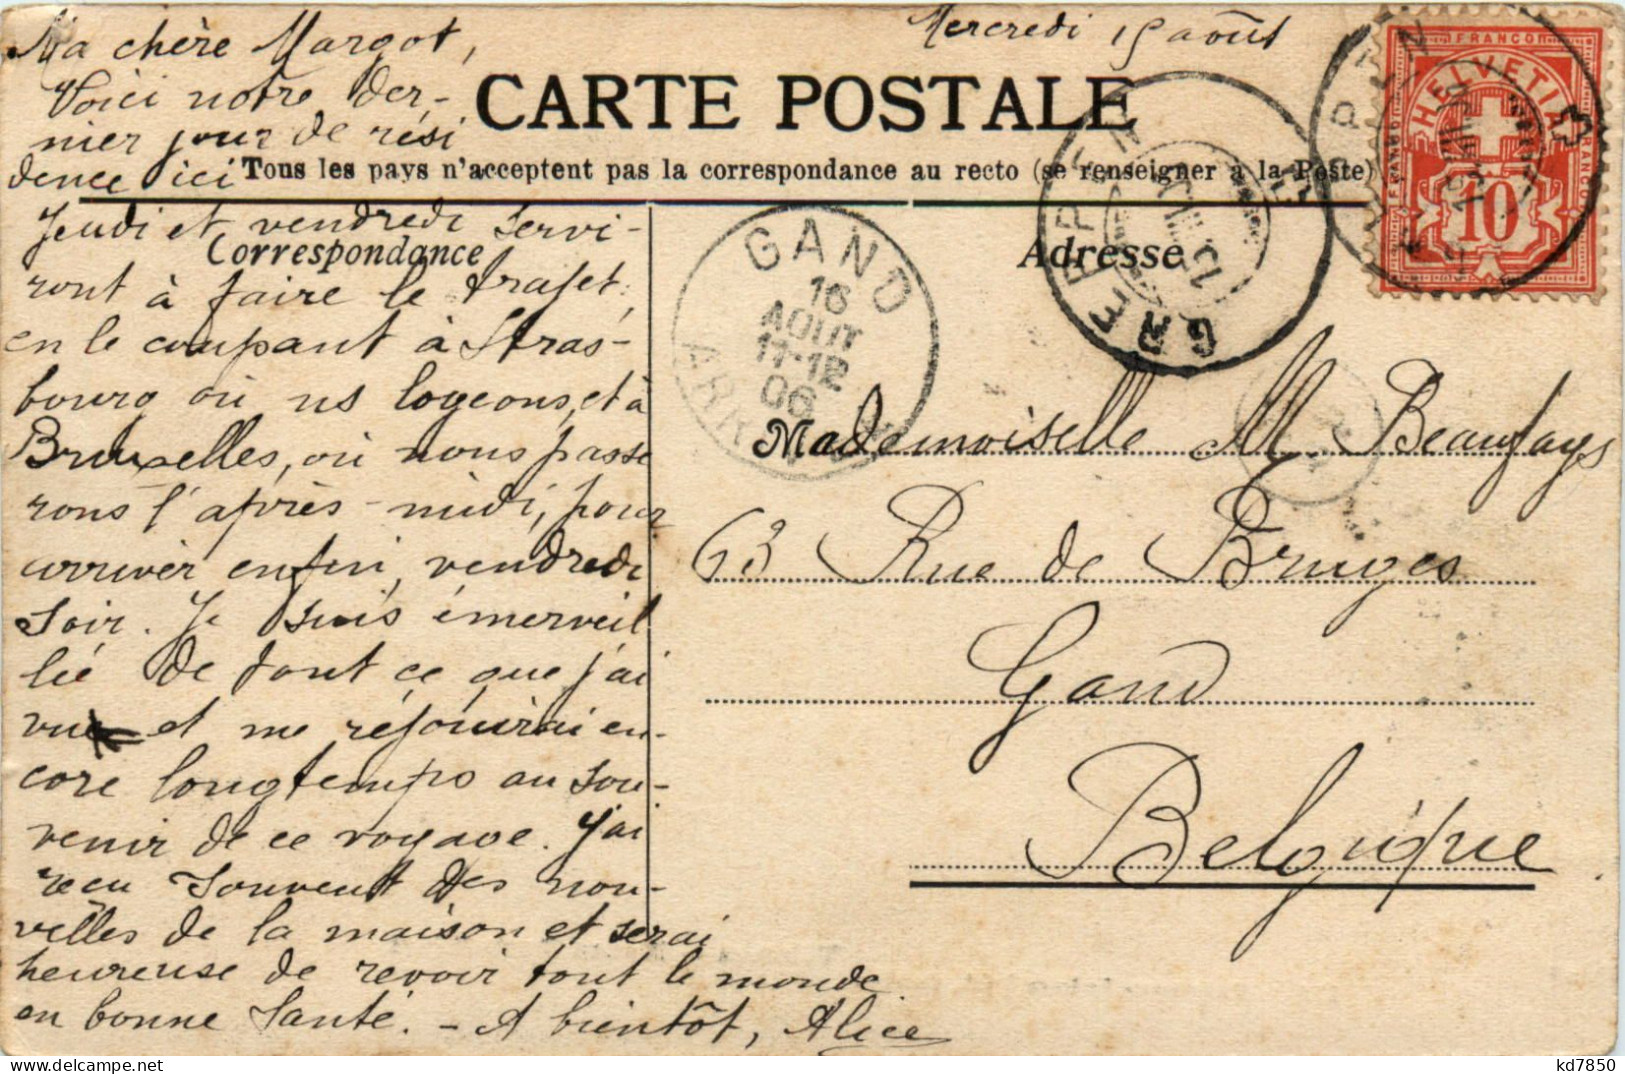 Mercredi 15 août
Ma chère Margot,
Voici notre der-
nier jour de rési
dence ici
Jeudi et vendredi servi-
ront à faire le trajet,
en le coupant à Stras-
bourg où ns logeons, et à
Bruxelles, où nous passe
rons l'après-midi, pour
arriver enfin, vendredi
soir. Je suis émerveil
lée de tout ce que j'ai
vu et me réjouirai en-
core longtemps au sou-
venir de ce voyage. J'ai
reçu souvent des nou-
velles de la maison et serai
heureuse de revoir tout le monde
en bonne santé. - A bientôt, Alice
CARTE POSTALE
Tous les pays n'acceptent pas la correspondance au recto (se renseigner à la Poste)
Correspondance
Adresse
GAND
16
AOUT
11-12
06
FRANCO
HELVETIA
FRANCO
FRANCO
10
Mademoiselle M. Beaufays
63 Rue de Bruges
Gand
Belgique
kd7850